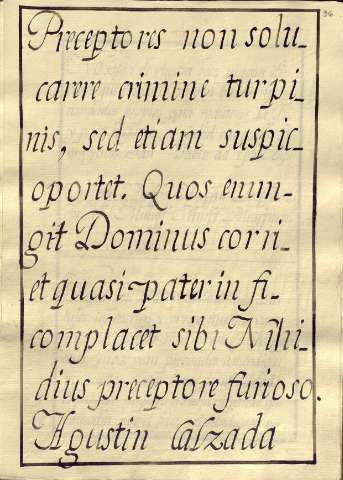 36
Preceptores non solu-
carere crimine turpi-
nis, sed etiam suspic-
oportet. Quos enim-
git Dominus corri-
et quasi pater in fi-
complacet sibi Nihi-
dius preceptore furioso.
Agustin Calzada